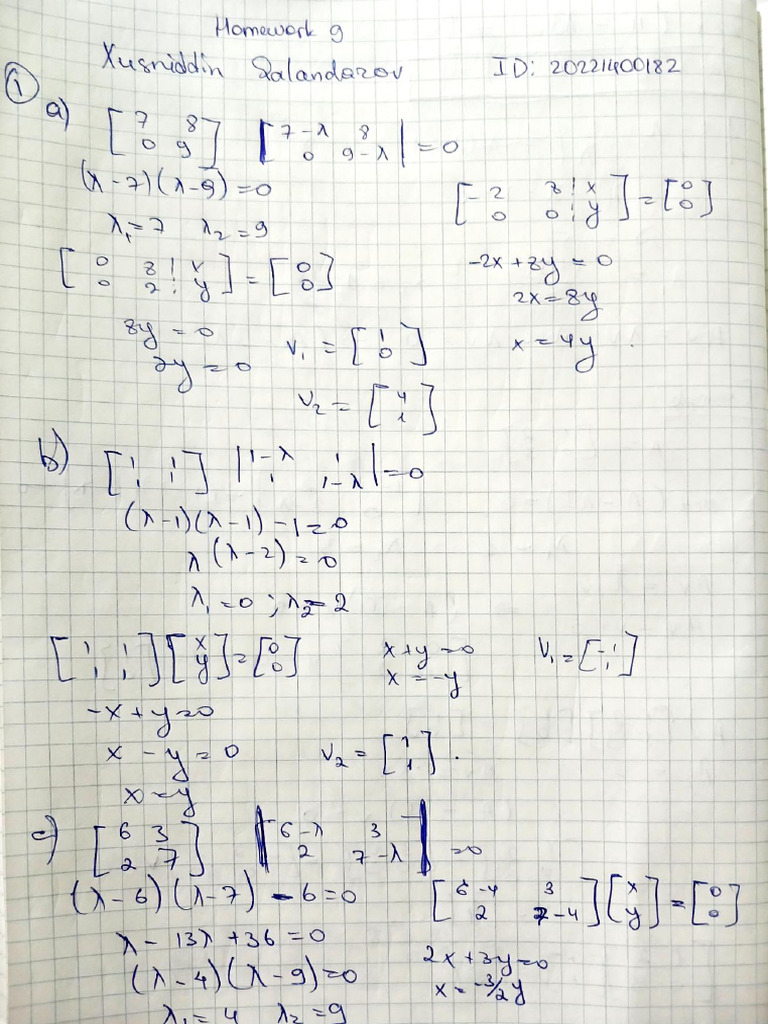 Homework 9
Xusniddin Qalandarov ID: 20221400182
①
a) [7 8; 0 9] |7-λ 8; 0 9-λ| = 0
(λ-7)(λ-9)=0
λ₁=7 λ₂=9
[0 8 ¦ x; 0 2 ¦ y] = [0; 0]
8y = 0
2y = 0
V₁ = [1; 0]
V₂ = [4; 1]
[-2 8 ¦ x; 0 0 ¦ y] = [0; 0]
-2x+8y=0
2x=8y
x=4y
b) [1 1; 1 1] |1-λ 1; 1 1-λ| = 0
(λ-1)(λ-1)-1=0
λ(λ-2)=0
λ₁=0; λ₂=2
[1 1; 1 1][x; y]=[0; 0]
x+y=0
x=-y
V₁=[-1; 1]
-x+y=0
x-y=0
x=y
V₂=[1; 1].
c) [6 3; 2 7] |6-λ 3; 2 7-λ| =0
(λ-6)(λ-7)-6=0
λ-13λ+36=0
(λ-4)(λ-9)=0
λ₁=4 λ₂=9
[6-4 3; 2 7-4][x; y]=[0; 0]
2x+3y=0
x=-3/2y